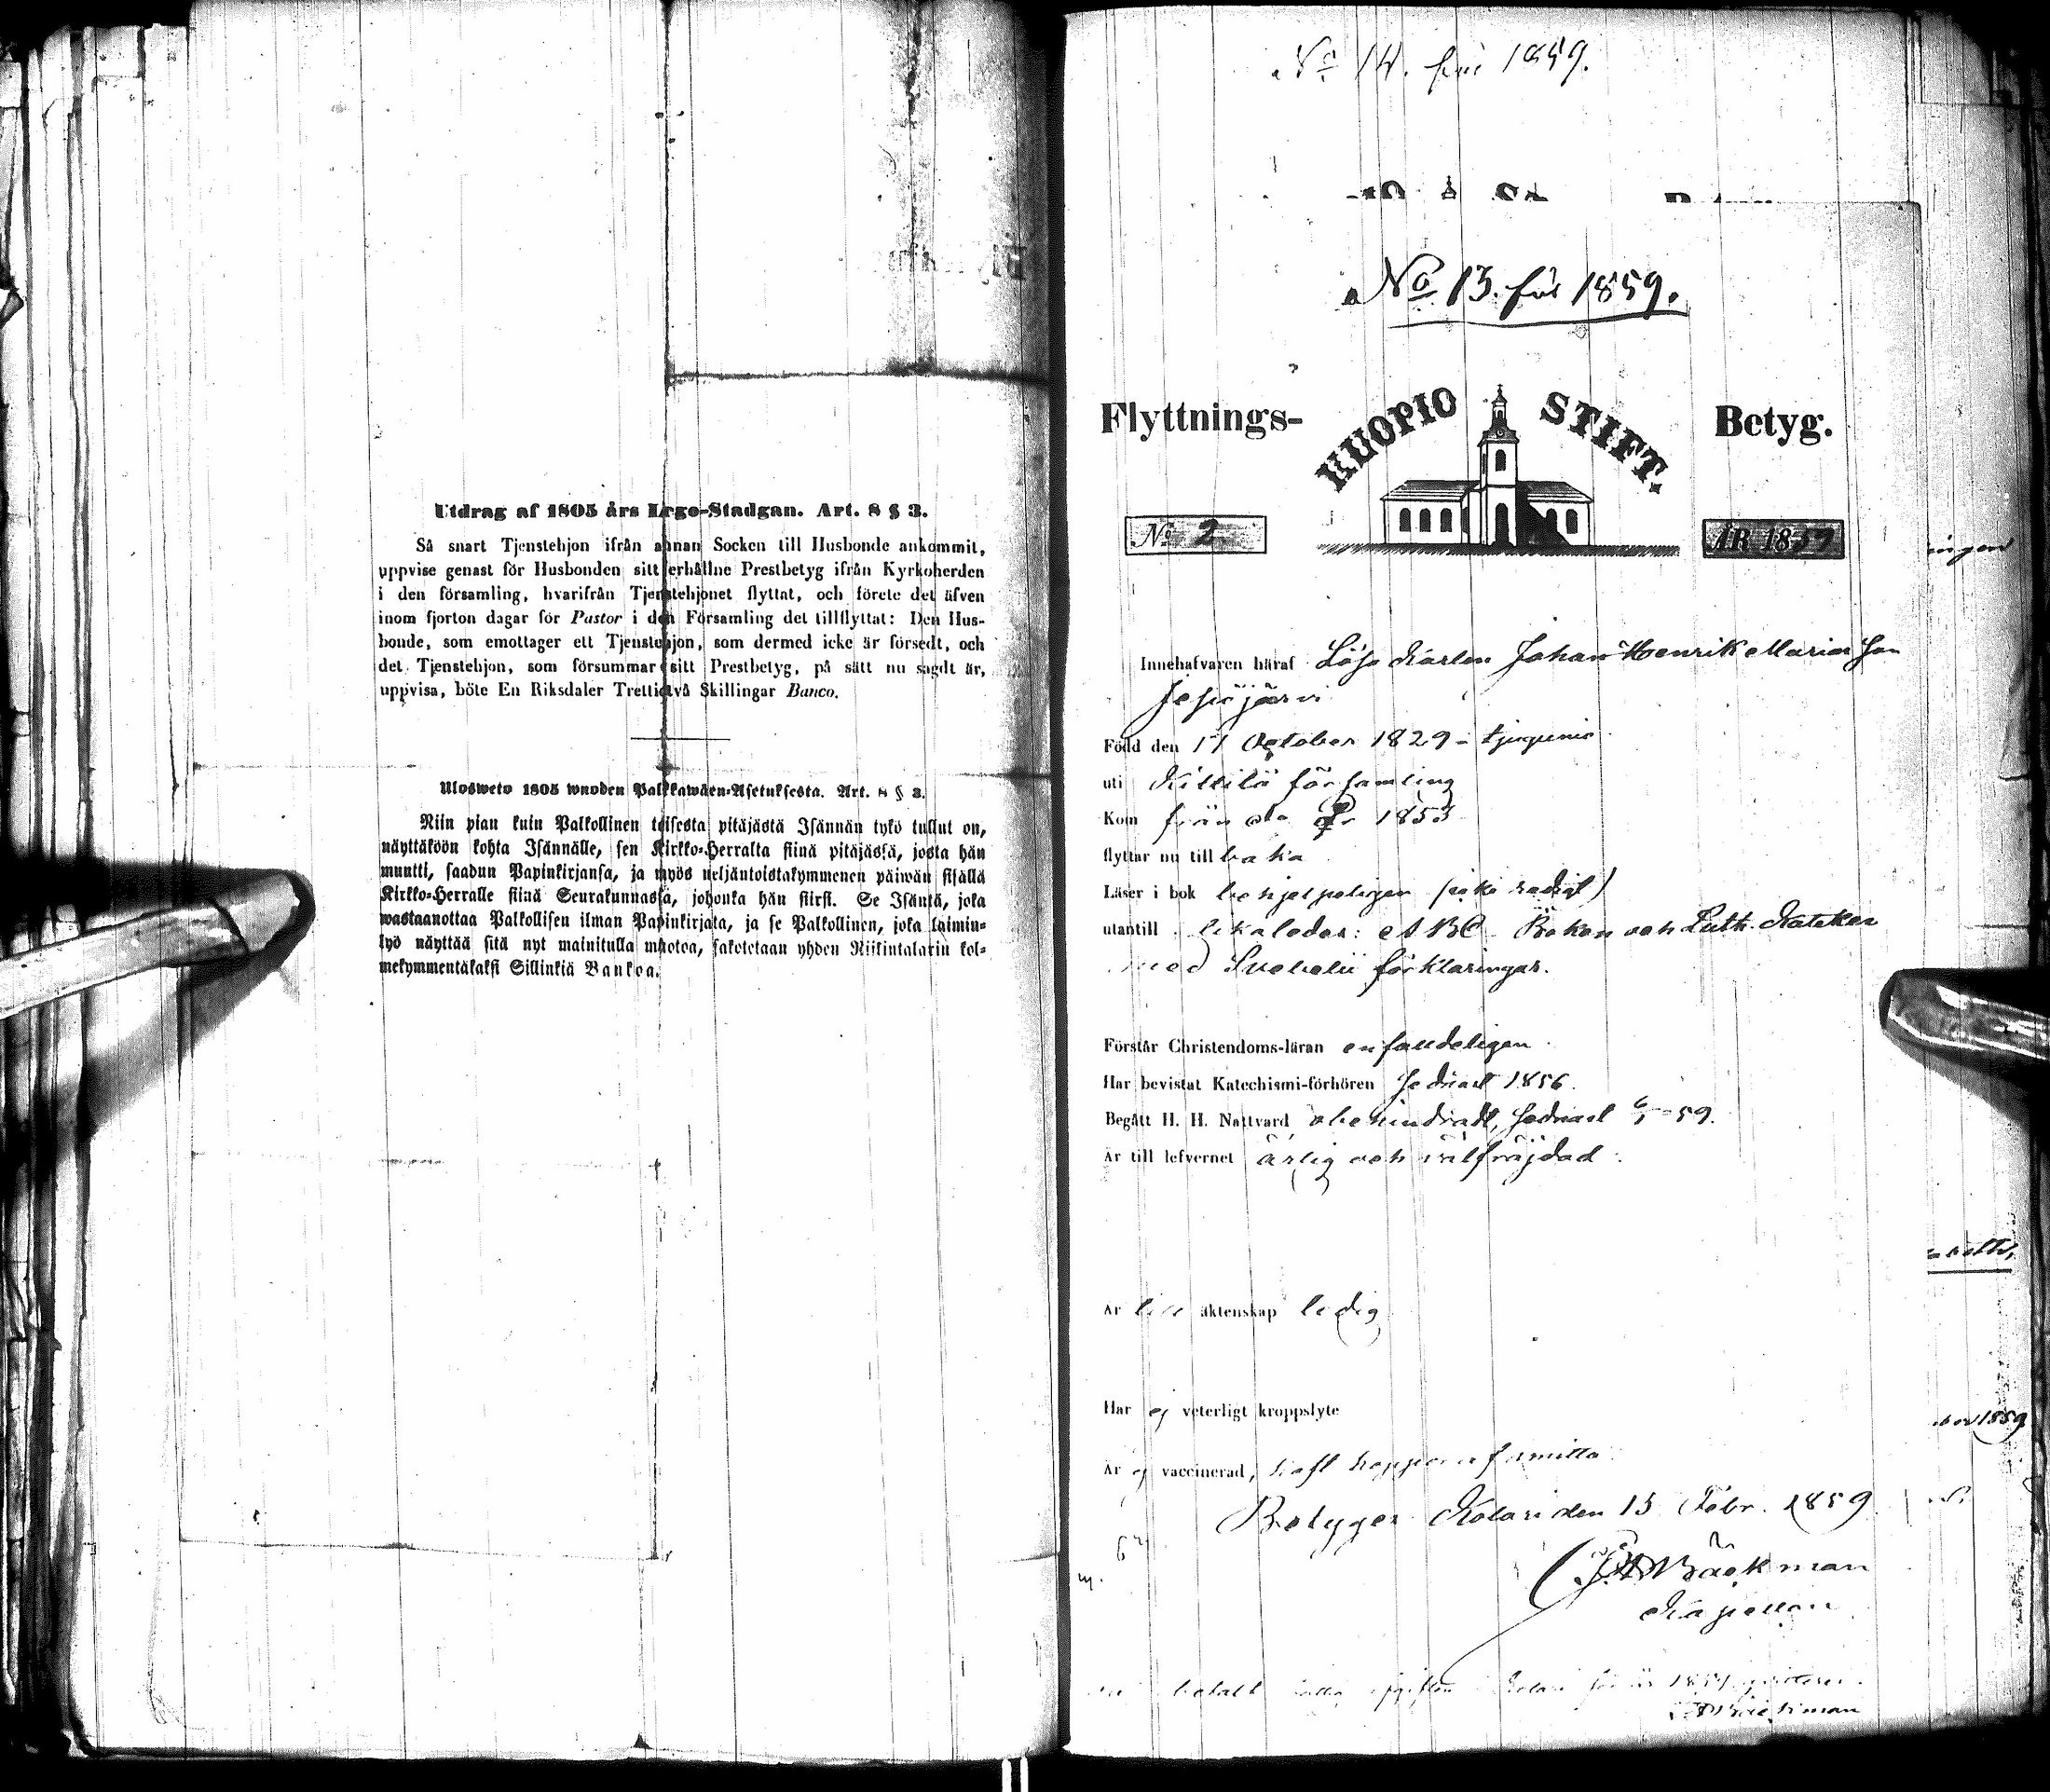 Utdrag af 1805 års Lego-Stadgan. Art. 8 § 3.
Så snart Tjenstehjon ifrån annan Socken till Husbonde ankommit,
uppvise genast för Husbonden sitt erhållne Prestbetyg ifrån Kyrkoherden
i den församling, hvarifrån Tjenstehjonet flyttat, och förete det äfven
inom fjorton dagar för Pastor i den Församling det tillflyttat: Den Hus-
bonde, som emottager ett Tjenstehjon, som dermed icke är försedt, och
det Tjenstehjon, som försummar sitt Prestbetyg, på sätt nu sagdt är,
uppvisa, böte En Riksdaler Trettiotvå Skillingar Banco.
Ulosweto 1805 wuoden Palkkawäen-Asetuksesta. Art. 8 § 3.
Niin pian kuin Palkollinen toisesta pitäjästä Isännän tykö tullut on,
näyttäköön kohta Isännälle, sen Kirkko-Herralta siinä pitäjässä, josta hän
muutti, saadun Papinkirjansa, ja myös neljäntoistakymmenen päiwän sisällä
Kirkko-Herralle siinä Seurakunnassa, johonka hän siirsi. Se Isäntä, joka
wastaanottaa Palkollisen ilman Papinkirjata, ja se Palkollinen, joka laimin-
lyö näyttää sitä nyt mainitulla muotoa, sakotetaan yhden Riikintalarin kol-
mekymmentäkaksi Sillinkiä Bankoa.
No 14. för 1859.
No 13. för 1859.
Flyttnings- KUOPIO STIFT. Betyg.
No 2
ÅR 1859
Innehafvaren häraf Lösa Karlen Johan Henrik Mariason
Jesiöjärvi
Född den 17 October 1829
uti Kittilä församling
Kom från do år 1853
flyttar nu tillbaka
Läser i bok
utantill ABC Boken och Luth. Kateches
med Svebelii förklaringar.
Förstår Christendoms-läran enfaldeligen
Har bevistat Katechismi-förhören sednast 1856.
Begått H. H. Nattvard obehindradt, sednast 6/1 59.
Är till lefvernet ärlig och välfräjdad.
Är till äktenskap ledig
Har ej veterligt kroppslyte
Är ej vaccinerad, haft koppor
Betygar Kolari den 15 Febr. 1859
Bäckman
Kapellan
betalt Kolari för år
Bäckman